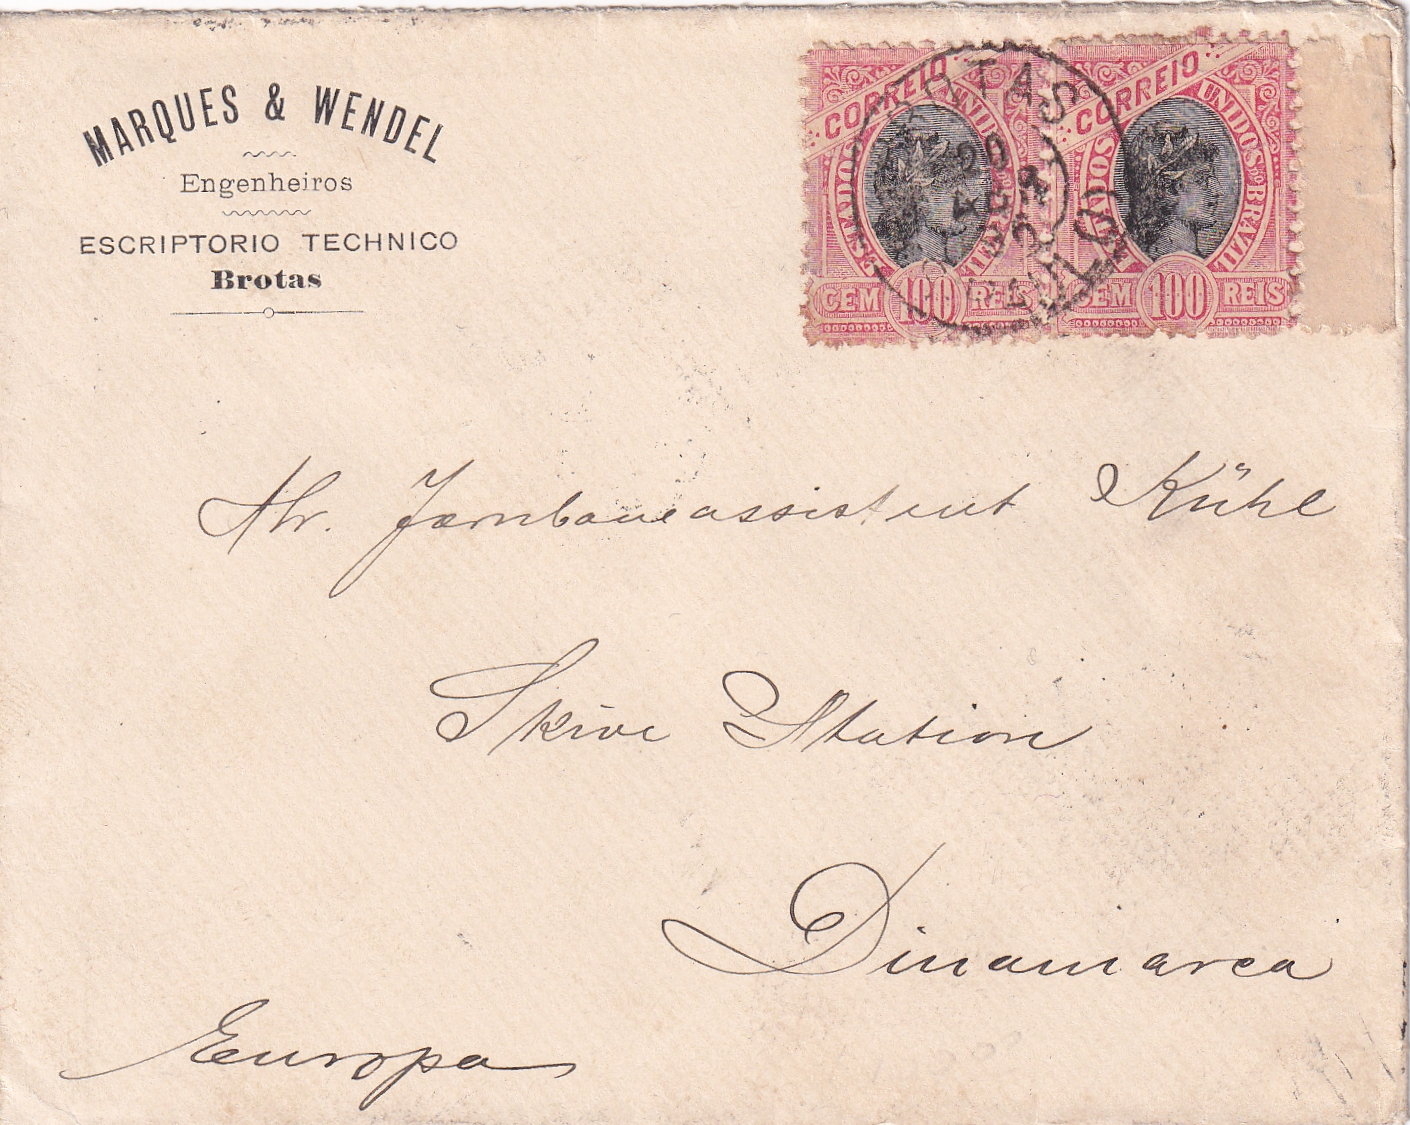 MARQUES & WENDEL
Engenheiros
ESCRIPTORIO TECHNICO
Brotas
CORREIO
ESTADOS UNIDOS DO BRAZIL
CEM 100 REIS
CORREIO
ESTADOS UNIDOS DO BRAZIL
CEM 100 REIS
Hr. Jernbaneassistent Kühl
Skive Station
Dinamarca
Europa